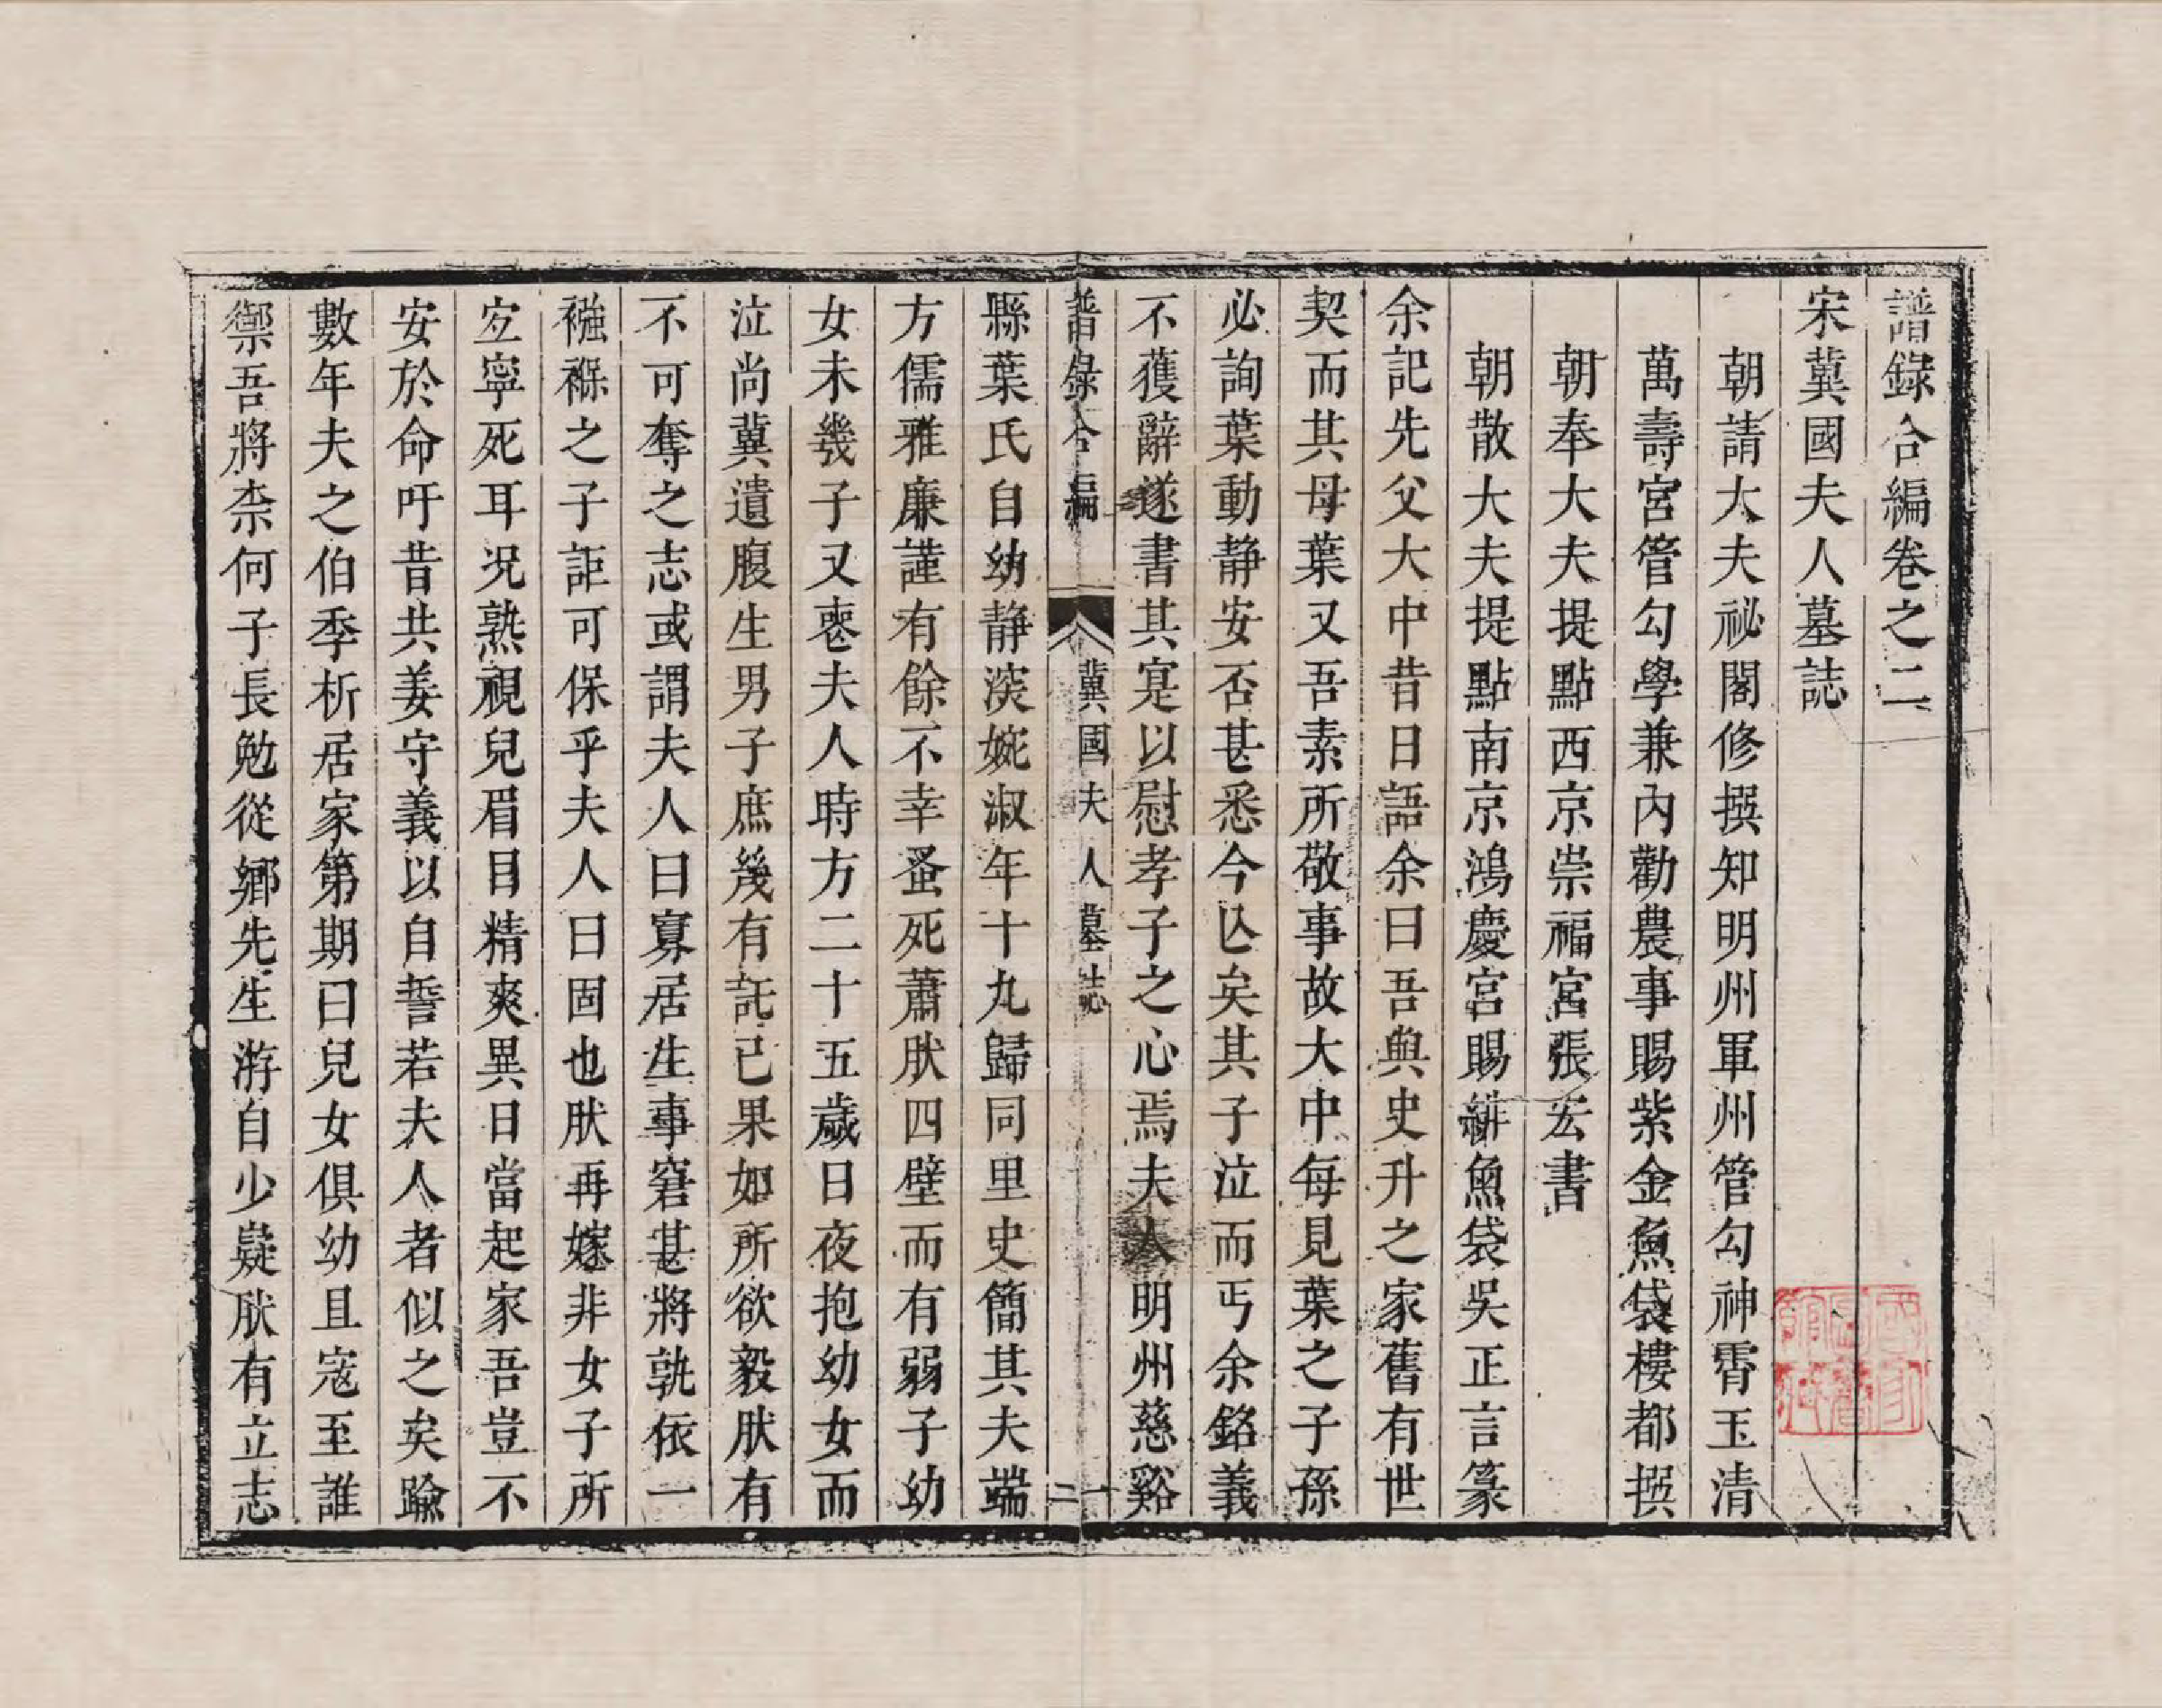 譜錄合編卷之二
宋冀國夫人墓誌
朝請大夫祕閣修撰知明州軍州管勾神霄玉清
萬壽宮管勾學兼內勸農事賜紫金魚袋樓都撰
朝奉大夫提點西京崇福宮張宏書
朝散大夫提點南京鴻慶宮賜緋魚袋吳正言篆
余記先父大中昔日語余曰吾與史升之家舊有世
契而其母葉又吾素所敬事故大中每見葉之子孫
必詢葉動静安否甚悉今亾矣其子泣而丐余銘義
不獲辭遂書其寔以慰孝子之心焉夫人明州慈谿
譜錄合編 冀國夫人墓誌 二
縣葉氏自幼静淡婉淑年十九歸同里史簡其夫端
方儒雅廉謹有餘不幸蚤死蕭肰四壁而有弱子幼
女未幾子又喪夫人時方二十五歲日夜抱幼女而
泣尚冀遺腹生男子庶幾有託已果如所欲毅肰有
不可奪之志或謂夫人曰寡居生事窘甚將孰依一
襁褓之子詎可保乎夫人曰固也肰再嫁非女子所
宜寧死耳况熟視兒眉目精爽異日當起家吾豈不
安於命吁昔共姜守義以自誓若夫人者似之矣踰
數年夫之伯季析居家第期曰兒女俱幼且寇至誰
禦吾將柰何子長勉從鄉先生游自少嶷肰有立志
國家圖書館藏